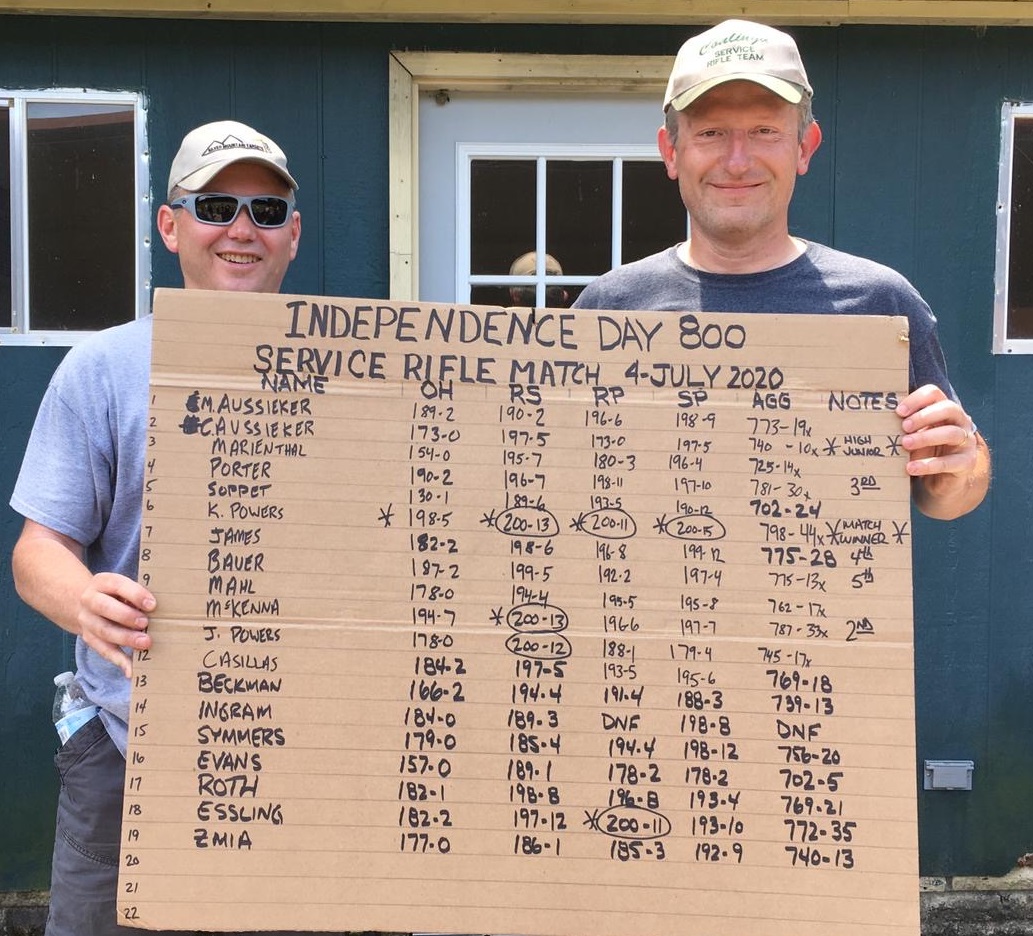 Continge SERVICE
RIFLE TEAM
SILVER MOUNTAIN TARGETS
INDEPENDENCE DAY 800
SERVICE RIFLE MATCH 4-JULY 2020
NAME OH RS RP SP AGG NOTES
1 M. AUSSIEKER 189-2 190-2 196-6 198-9 773-19x
2 C. AUSSIEKER 173-0 197-5 173-0 197-5 740-10x * HIGH JUNIOR *
3 MARIENTHAL 154-0 195-7 180-3 196-4 725-14x
4 PORTER 190-2 196-7 198-11 197-10 781-30x 3RD
5 SOPPET 130-1 189-6 193-5 190-12 702-24
6 K. POWERS * 198-5 * 200-13 * 200-11 * 200-15 798-44x * MATCH WINNER *
7 JAMES 182-2 198-6 196-8 199-12 775-28 4th
8 BAUER 187-2 199-5 192-2 197-4 775-13x 5th
9 MAHL 178-0 194-4 195-5 195-8 762-17x
MCKENNA 194-7 * 200-13 196-6 197-7 787-33x 2ND
J. POWERS 178-0 200-12 188-1 179-4 745-17x
12 CASILLAS 184-2 197-5 193-5 195-6 769-18
13 BECKMAN 166-2 194-4 191-4 188-3 739-13
14 INGRAM 184-0 189-3 DNF 198-8 DNF
15 SYMMERS 179-0 185-4 194-4 198-12 756-20
16 EVANS 157-0 189-1 178-2 178-2 702-5
17 ROTH 182-1 198-8 196-8 193-4 769-21
18 ESSLING 182-2 197-12 * 200-11 193-10 772-35
19 ZMIA 177-0 186-1 185-3 192-9 740-13
20
21
22